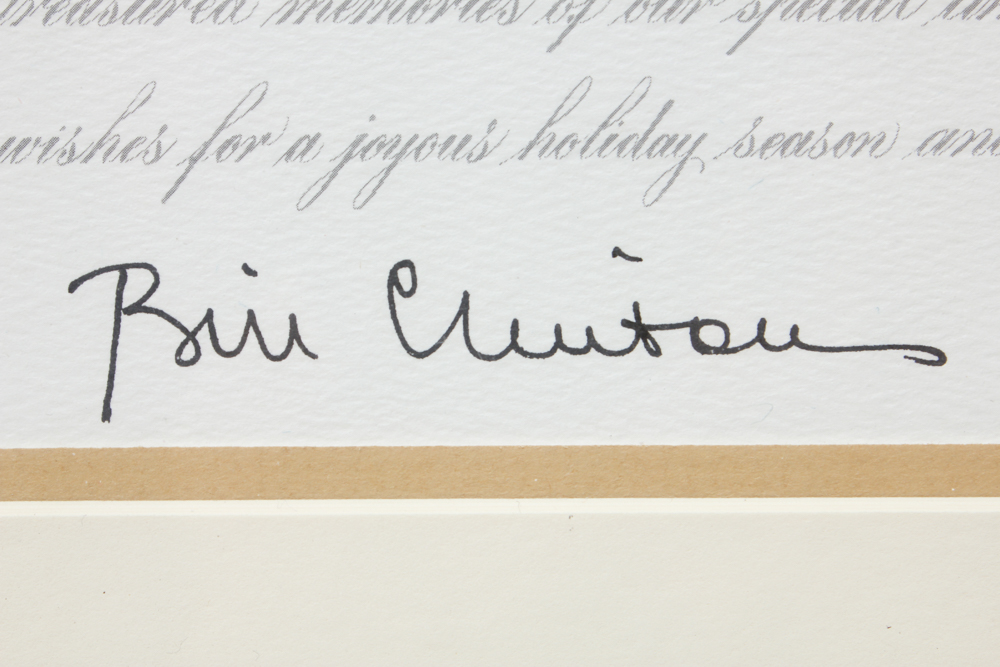 treasured memories of our special
wishes for a joyous holiday season and
Bill Clinton